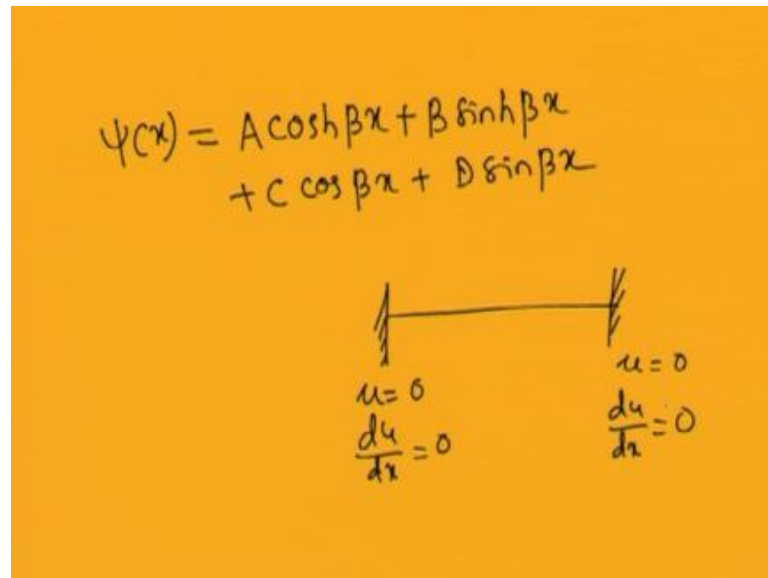 ψ(x) = A cosh βx + B sinh βx
+ C cos βx + D sin βx
u = 0
du/dx = 0
u = 0
du/dx = 0